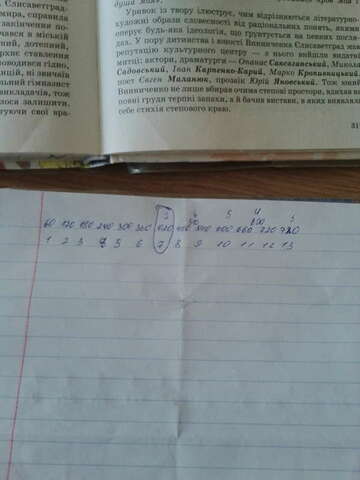 Єлисаветград-
мира, справила
закінчення по-
ався в міській
ний, дотепний,
рхає ставлення
оводився гідно,
ицій, не звичаїв
льний гімназист
викладачів, тож
лося залишити.
туючи свої вра-
Уривок із твору ілюструє, чим відрізняються літературно-
художні образи словесності від раціональних понять, якими
оперує будь-яка ідеологія, що ґрунтується на певних погля-
дах. У пору дитинства і юності Винниченка Єлисаветград мав
репутацію культурного центру — з нього вийшли видатні
митці: актори, драматурги — Опанас Саксаганський, Микола
Садовський, Іван Карпенко-Карий, Марко Кропивницький,
поет Євген Маланюк, прозаїк Юрій Яновський. Тож юний
Винниченко не лише вбирав очима степові простори, вдихав на
повні груди терпкі запахи, а й бачив вистави, в яких вирувала
себе стихія степового краю.
60 120 180 240 300 360 420 480 540 600 660 720
1 2 3 4 5 6 7 8 9 10 11 12 13